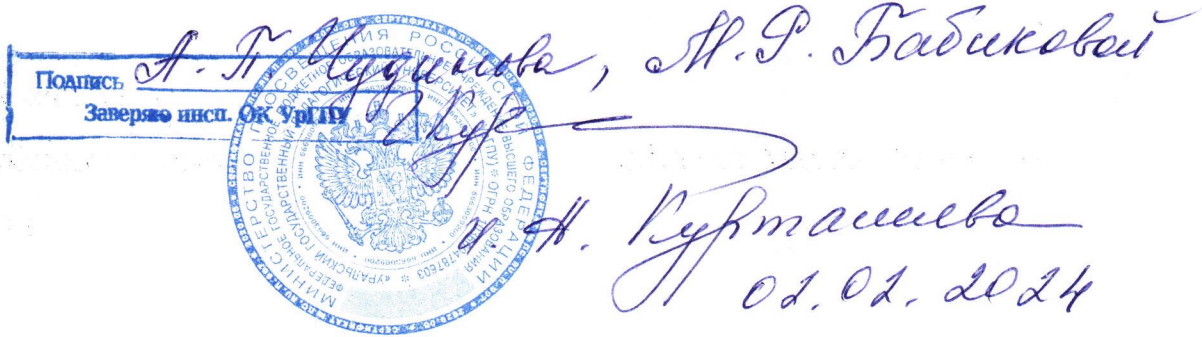 Подпись А. П. Чудинова, М. Р. Бабиковой
Заверяю инсп. ОК УрГПУ
МИНИСТЕРСТВО ПРОСВЕЩЕНИЯ РОССИЙСКОЙ ФЕДЕРАЦИИ
ФЕДЕРАЛЬНОЕ ГОСУДАРСТВЕННОЕ БЮДЖЕТНОЕ ОБРАЗОВАТЕЛЬНОЕ УЧРЕЖДЕНИЕ ВЫСШЕГО ОБРАЗОВАНИЯ
«УРАЛЬСКИЙ ГОСУДАРСТВЕННЫЙ ПЕДАГОГИЧЕСКИЙ УНИВЕРСИТЕТ» ОГРН
И. Н.
02.02.2024